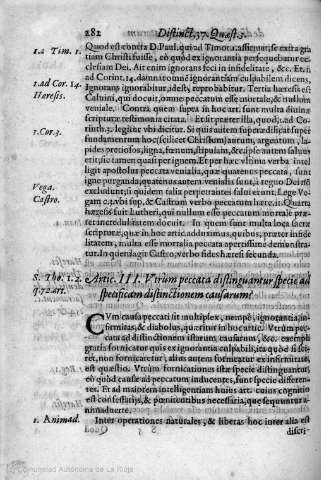 282 Distinct. 37. Quæst. 3.
1.a Tim. 1. Quod est contra D. Paul. qui ad Timot. 1. asserit, se extra gra
tiam Christi fuisse, eò quòd ex ignorantia persequebatur ec
clesiam Dei. Ait enim ignorans feci in infidelitate, &c. Et 1.
1. ad Cor. 14. ad Corint. 14. damnat omnē ignorantiam culpabilem dicens,
Hæresis. Ignorans ignorabitur, idest, reprobabitur. Tertia hæresis est
Caluini, qui docet, omne peccatum esse mortale, & nullum
veniale. Contra quem supra in hoc art. sunt multa diuinæ
scripturæ testimonia citata. Et est præter illa, quod ad Co
1. Cor. 3. rinth. 3. legitur vbi dicitur. Si quis autem superædificat super
fundamentum hoc aurum, argentum, la
pides pretiosos, ligna, fœnum, stipulam, & ipse autem saluus
erit sic tamen quasi per ignem. Et per hæc vltima verba intel
ligit apostolus peccata venialia, quæ
igne purganda, quatenus autem venialia sunt, à regno Dei nō
excludunt
Vega. Lege Ve-
Castro. gam & Castrum verbo peccatum hære. Quarta
hæresis fuit Lutheri, qui nullum esse peccatum mortale præ
ter incredulitatem docuit. In quem sunt multa loca sacræ
scripturæ, quæ in hoc artic. adduximus, quibus, præter infide
litatem, multa esse mortalia peccata apertissime demonstra
tur. In quem agit Castro, verbo fides hæresi secunda.
S. Tho. 1. 2. Artic. III. Vtrùm peccata distinguantur specie ad
q. 72. art. specificam distinctionem causarum?
CVm causa peccati sit multiplex, nempè, ignorantia, in
firmitas, & diabolus, quæritur in hoc artic. Vtrùm pec-
cata ad distinctionem istarum causarum, &c. exempli
gratia fornicatur quis ex ignorantia culpabili, ita quòd si sci-
ret, non fornicaretur, alius autem fornicatur ex infirmitate,
est quæstio. Vtrùm fornicationes istæ specie distinguantur,
eò quòd causæ ad peccatum inducentes, sunt specie differen-
tes. Et ad maiorem intelligentiam huius art. cuius cognitio
est confessarijs, & pœnitentibus necessaria, quæ sequuntur a-
nimaduerte.
1. Animad. Inter operationes naturales, & liberas hoc interalia est
discri-
Comunidad Autónoma de La Rioja